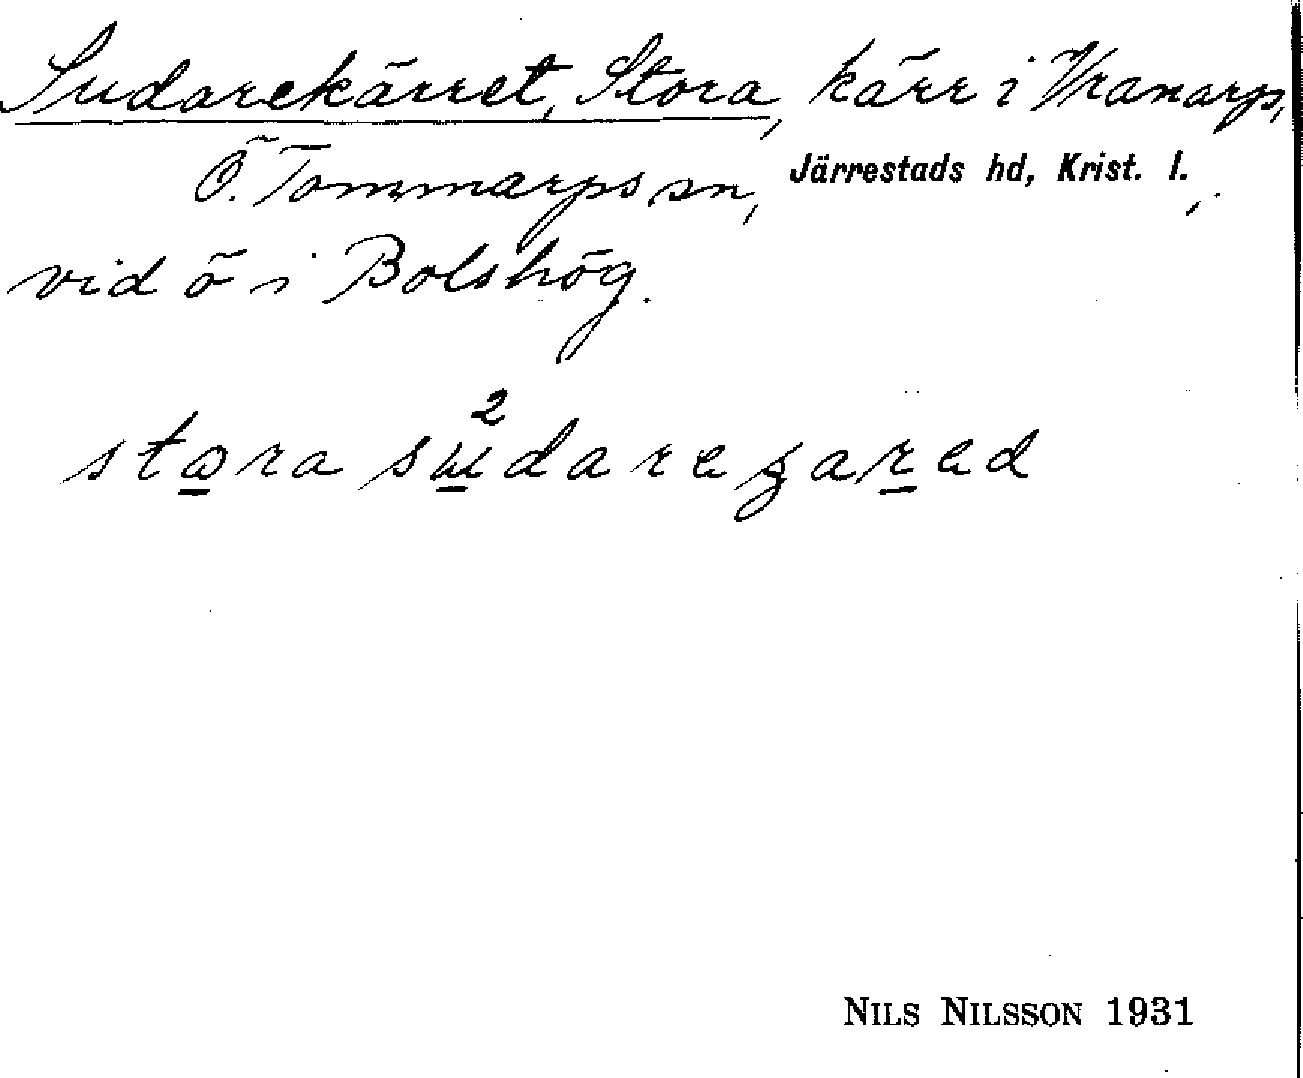 Sudarekärret, Stora, kärr i Vranarp,
Ö. Tommarps sn, Järrestads hd, Krist. l.,
vid ö i Bolshög.
stora su²daregared
NILS NILSSON 1931